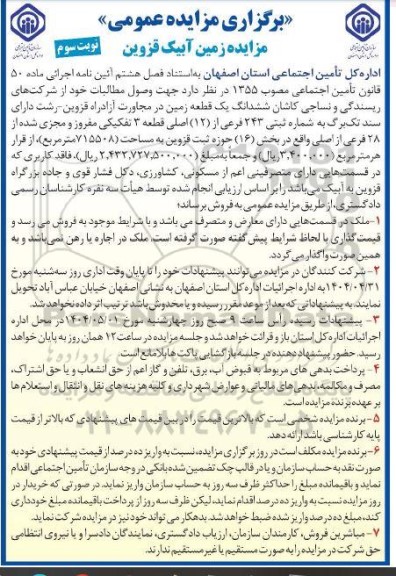 «برگزاری مزایده عمومی»
نوبت سوم
مزایده زمین آبیک قزوین
اداره کل تأمین اجتماعی استان اصفهان به‌استناد فصل هشتم آئین نامه اجرائی ماده ۵۰
قانون تأمین اجتماعی مصوب ۱۳۵۵ در نظر دارد جهت وصول مطالبات خود از شرکت‌های
ریسندگی و نساجی کاشان ششدانگ یک قطعه زمین در مجاورت آزادراه قزوین-رشت دارای
سند تک‌برگ به شماره ثبتی ۲۴۳ فرعی از (۱۲) اصلی قطعه ۳ تفکیکی مفروز و مجزی شده از
۲۸ فرعی از اصلی واقع در بخش (۱۶) حوزه ثبت قزوین به مساحت (۷۱۵۵۰۸مترمربع)، از قرار
هر مترمربع (۳.۴۰۰.۰۰۰ریال) و جمعاً به مبلغ (۲,۴۳۲,۷۲۷,۵۰۰,۰۰۰ریال)، فاقد کاربری که
در قسمت‌هایی دارای متصرفینی اعم از مسکونی، کشاورزی، دکل فشار قوی و جاده بزرگراه
قزوین به آبیک می‌باشد را بر اساس ارزیابی انجام شده توسط هیأت سه نفره کارشناسان رسمی
دادگستری، از طریق مزایده عمومی به فروش برساند؛
۱-ملک در قسمت‌هایی دارای معارض و متصرف می باشد و با شرایط موجود به فروش می رسد و
قیمت‌گذاری با لحاظ شرایط پیش گفته صورت گرفته است، ملک در اجاره یا رهن نمی‌باشد و به
همین صورت واگذار می‌گردد.
۲- شرکت کنندگان در مزایده می‌توانند پیشنهادات خود را تا پایان وقت اداری روز سه‌شنبه مورخ
۱۴۰۴/۰۴/۳۱ به اداره اجرائیات اداره کل استان اصفهان به نشانی اصفهان خیابان عباس آباد تحویل
نمایند. به پیشنهاداتی که بعد از موعد مقرر رسیده و یا مخدوش باشد ترتیب اثر داده نخواهد شد.
۳- پیشنهادات رسیده رأس ساعت ۹ صبح روز چهارشنبه مورخ ۱۴۰۴/۰۵/۰۱ در محل اداره
اجرائیات اداره کل استان باز و قرائت خواهد شد و جلسه مزایده در ساعت ۱۲ همان روز به پایان خواهد
رسید. حضور پیشنهاد دهنده در جلسه بازگشایی پاکت‌ها بلامانع است.
۴- پرداخت بدهی های مربوط به قبوض آب، برق، تلفن و گاز اعم از حق انشعاب و یا حق اشتراک،
مصرف و مکالمه، بدهی‌های مالیاتی و عوارض شهرداری و کلیه هزینه های نقل و انتقال و استعلام ها
بر عهده برنده مزایده است.
۵- برنده مزایده شخصی است که بالاترین قیمت را در بین قیمت های پیشنهادی که بالاتر از قیمت
پایه کارشناسی باشد ارائه دهد.
۶-برنده مزایده مکلف است در روز برگزاری مزایده، نسبت به واریز ده درصد از قیمت پیشنهادی خود به
صورت نقد به حساب سازمان و یا در قالب چک تضمین شده بانکی در وجه سازمان تأمین اجتماعی اقدام
نماید و باقیمانده مبلغ را حداکثر ظرف سه روز به حساب سازمان واریز نماید. در صورتی که خریدار در
روز مزایده نسبت به واریز ده درصد اقدام نماید، لیکن ظرف سه روز از پرداخت باقیمانده مبلغ خودداری
کند، مبلغ ده درصد واریز شده ضبط خواهد شد. بدهکار می تواند خود نیز در مزایده شرکت نماید.
۷- مباشرین فروش، کارمندان سازمان، ارزیاب دادگستری، نمایندگان دادسرا و یا نیروی انتظامی
حق شرکت در مزایده را به صورت مستقیم یا غیر مستقیم ندارند.